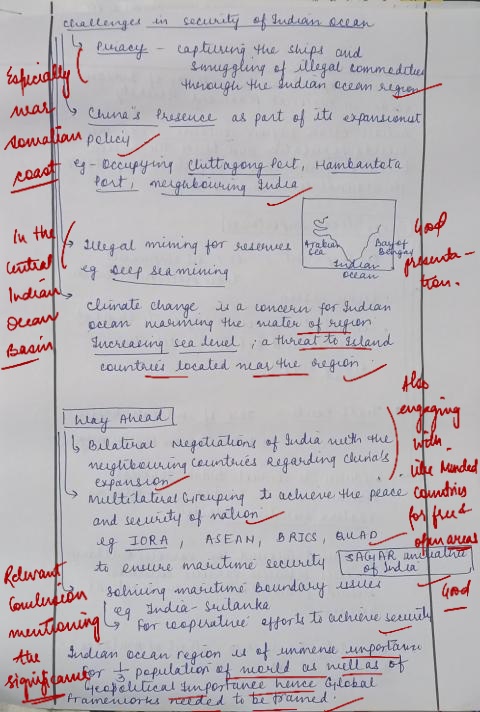 Challenges in security of Indian Ocean
Piracy - capturing the ships and
smuggling of illegal commodities
through the Indian ocean region
Especially
near
Somalian
coast
China's Presence as part of its expansionist
policy
eg - Occupying Chittagong Port, Hambantota
Port, neighbouring India
Arabian
Sea
Bay of
Bengal
Indian
Ocean
Good
presenta-
tion.
In the
Central
Indian
Ocean
Basin
Illegal mining for reserves
eg Deep sea mining
Climate change is a concern for Indian
ocean warming the water of region
Increasing sea level, a threat to Island
countries located near the region
Way Ahead
Bilateral Negotiations of India with the
neighbouring countries regarding China's
expansion
Also
engaging
with
like minded
countries
for free &
open areas
Multilateral Grouping to achieve the peace
and security of nation
eg IORA, ASEAN, BRICS, QUAD
to ensure maritime security
SAGAR initiative
of India
Good
solving maritime Boundary issues
eg India - Srilanka
For cooperative efforts to achieve security
Relevant
Conclusion
mentioning
the
significance
Indian ocean region is of immense importance
for 1/3 population of world as well as of
Geopolitical Importance hence Global
frameworks needed to be framed.